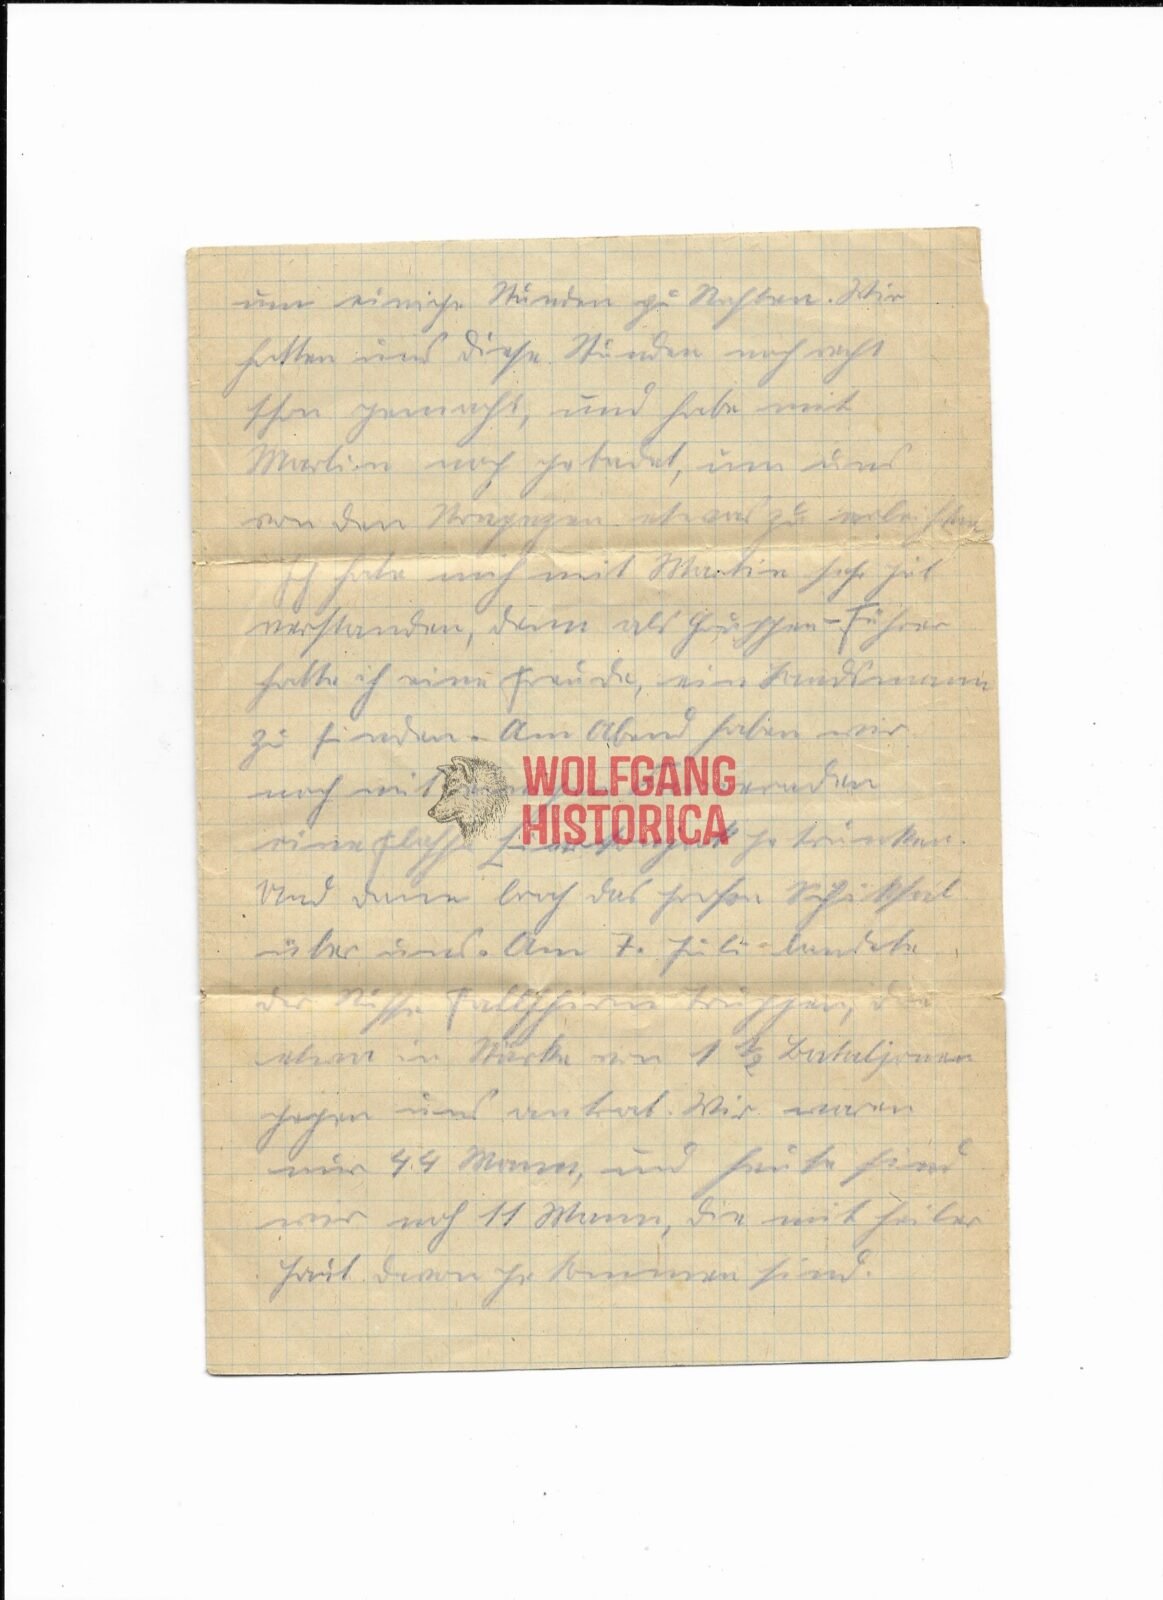 um einige Stunden zu Rasten. Wir
hatten uns diese Stunden noch recht
schön gemacht, und habe mit
Martin noch gebadet, um uns
von den Strapazen etwas zu
Ich habe mich mit Martin sehr gut
verstanden, denn als Gruppen-Führer
hatte ich eine Freude, ein Landsmann
zu finden. Am Abend haben wir
noch mit
WOLFGANG
HISTORICA
eine Flasche getrunken.
Und dann brach das große Schicksal
über uns. Am 7. Juli landete
der Russe Fallschirm Truppen, die
etwa in Stärke von 1 1/2 Bataljonen
gegen uns antrat. Wir waren
nur 44 Mann, und heute sind
wir noch 11 Mann, die mit heiler
Haut davon gekommen sind.